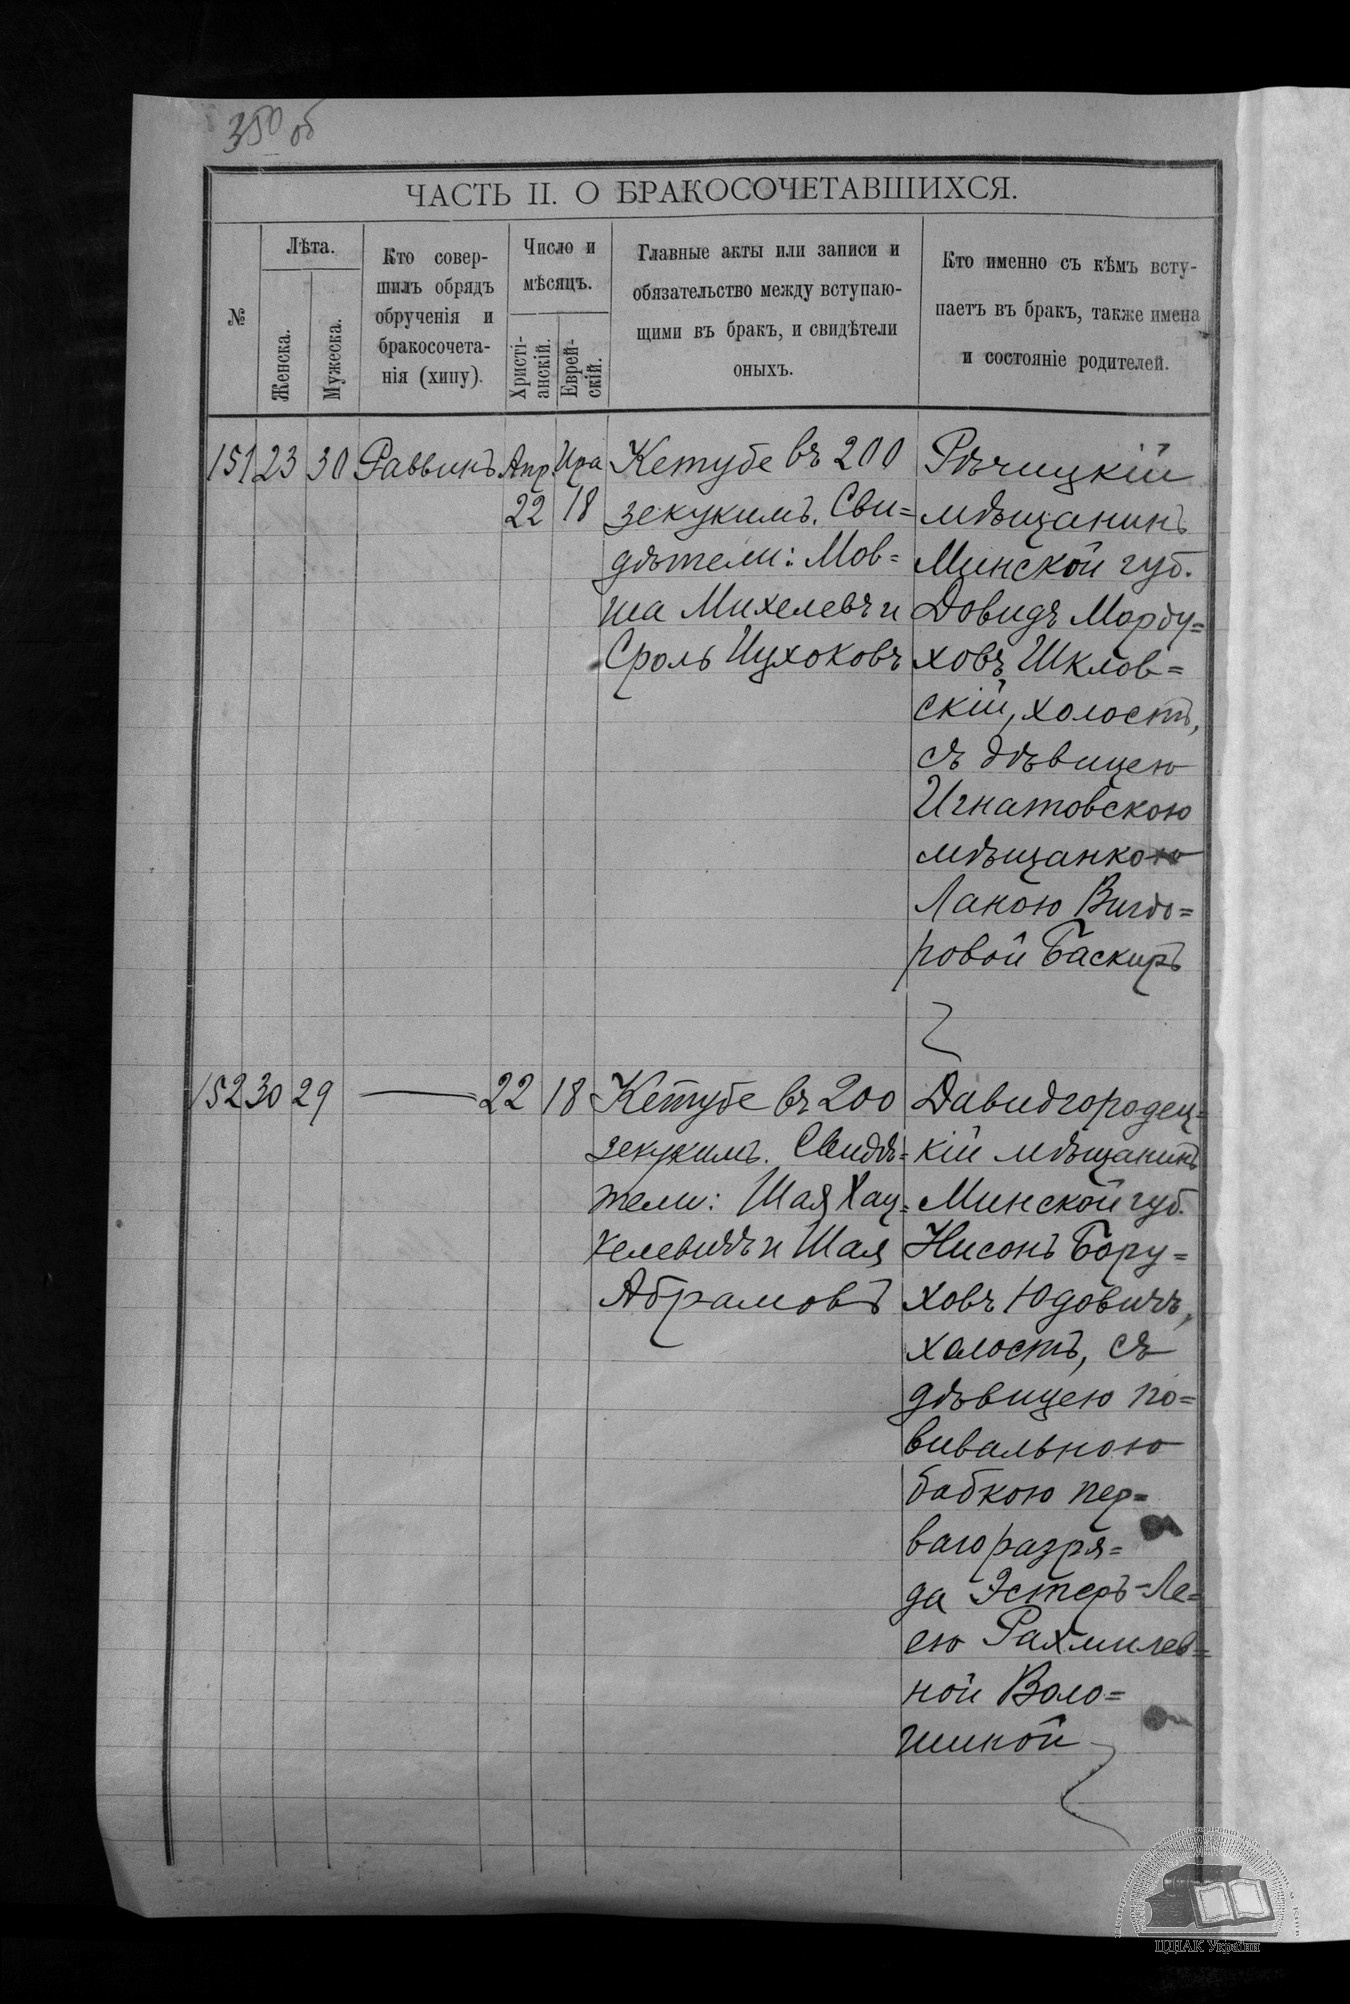 350 об
ЧАСТЬ II. О БРАКОСОЧЕТАВШИХСЯ.
№
Лѣта.
Женска.
Мужеска.
Кто совер-
шилъ обрядъ
обрученія и
бракосочета-
нія (хипу).
Число и
мѣсяцъ.
Христі-
анскій.
Еврей-
скій.
Главные акты или записи и
обязательство между вступаю-
щими въ бракъ, и свидѣтели
оныхъ.
Кто именно съ кѣмъ всту-
паетъ въ бракъ, также имена
и состояніе родителей.
151 23 30 Раввинъ Апр. Ира
22 18
Кетубе въ 200
зекукимъ. Сви=
дѣтели: Мов=
ша Михелевъ и
Сроль Цухоковъ
Рѣчицкій
мѣщанинъ
Минской губ.
Довидъ Морду=
ховъ Шклов=
скій, холостъ,
съ дѣвицею
Игнатовскою
мѣщанкою
Ланою Вигдо=
ровой Баскиръ
152 30 29 — 22 18
Кетубе въ 200
зекукимъ. Свидѣ=
тели: Шая Хац=
келевичъ и Шая
Абрамовъ
Давидгородец=
кій мѣщанинъ
Минской губ.
Нисонъ Бору=
ховъ Юдовичъ,
холостъ, съ
дѣвицею по=
вивальною
бабкою пер=
ваго разря=
да Эстеръ=Ле=
ею Рахмилев=
ной Воло=
шиной
ЦДІАК України